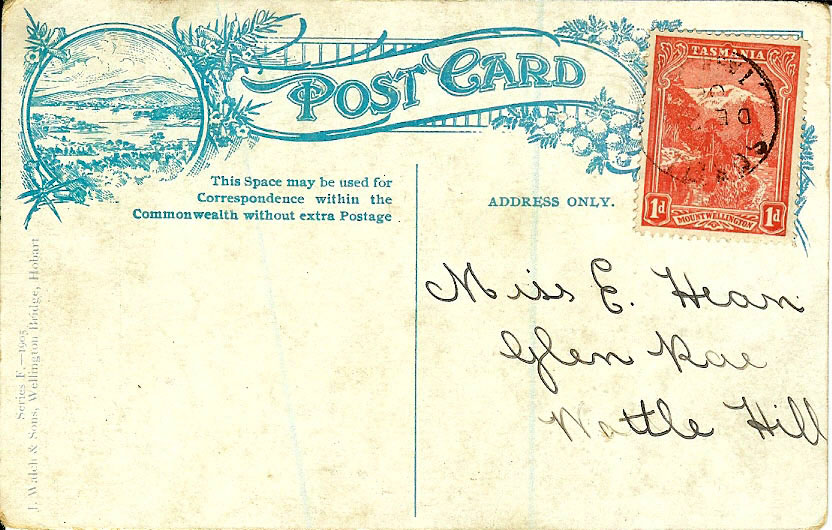 POST CARD
TASMANIA
This Space may be used for
Correspondence within the
Commonwealth without extra Postage
ADDRESS ONLY.
1d MOUNT WELLINGTON 1d
Miss E. Hean
Glen Rae
Wattle Hill
Series F.—1905
J. Walch & Sons, Wellington Bridge, Hobart